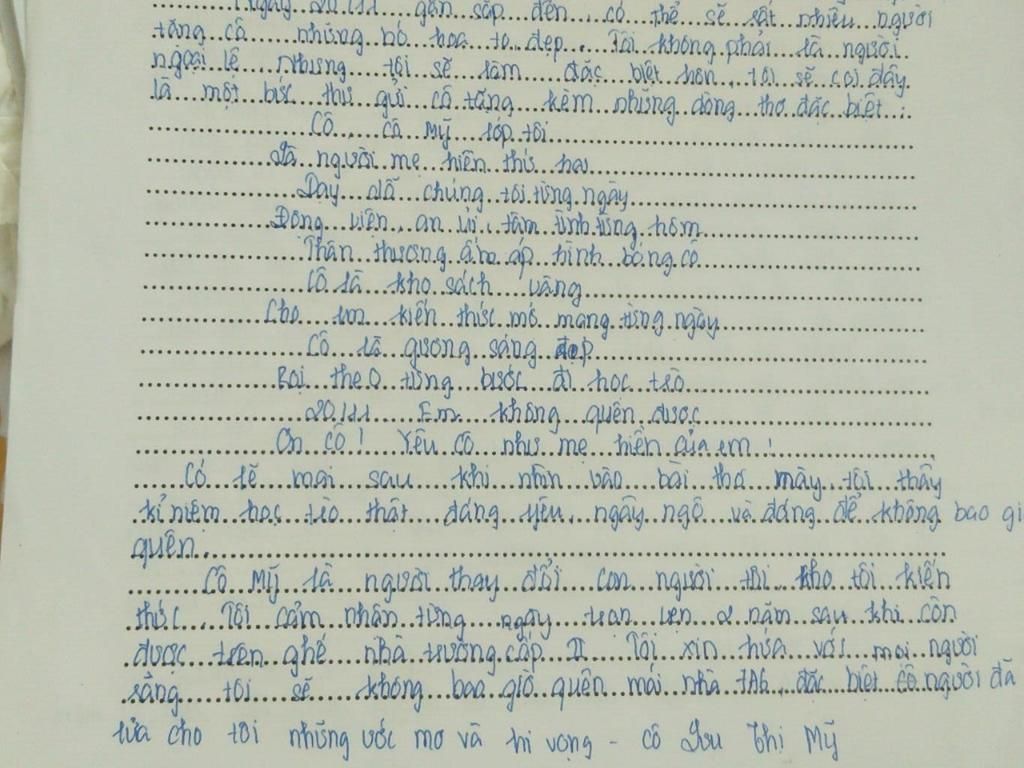 Ngày 20.11 gần sắp đến có thể sẽ rất nhiều người
tặng cô những bó hoa to đẹp. Tôi không phải là người
ngoại lệ nhưng tôi sẽ làm đặc biệt hơn, tôi sẽ coi đây
là một bức thư gửi cô tặng kèm những dòng thơ đặc biệt:
Cô, cô Mỹ lớp tôi
Là người mẹ hiền thứ hai
Dạy dỗ chúng tôi từng ngày
Động viên, an ủi, tâm tình từng hôm
Thân thương ấm áp hình bóng cô
Cô là kho sách vàng
Cho em kiến thức mở mang từng ngày
Cô là gương sáng đẹp
Rọi theo từng bước đi học trò
20.11 Em không quên được
Ơn cô! Yêu cô như mẹ hiền của em!
Có lẽ mai sau khi nhìn vào bài thơ này tôi thấy
kỉ niệm học trò thật đáng yêu, ngây ngô và đáng để không bao gi
quên.
Cô Mỹ là người thay đổi con người tôi kho tôi kiến
thức. Tôi cảm nhận từng ngày trọn vẹn 2 năm sau khi còn
được trên ghế nhà trường cấp II Tôi xin hứa với mọi người
rằng tôi sẽ không bao giờ quên mái nhà 7A6, đặc biệt cô người đã
cho tôi những ước mơ và hi vọng - cô Lưu Thị Mỹ